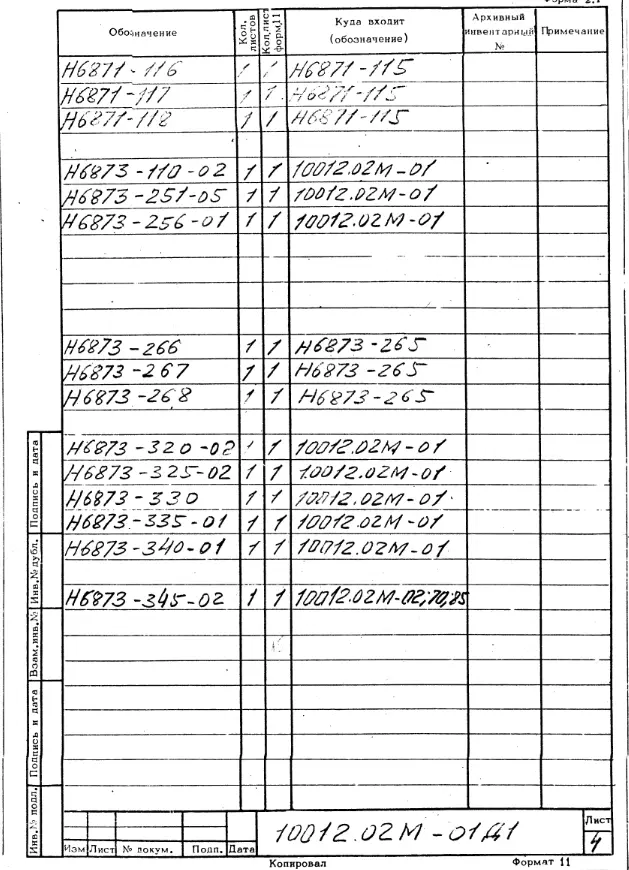 Форма 2.1
Обозначение Кол. листов Кол.лист форм.11 Куда входит (обозначение) Архивный инвентарный № Примечание
Н6871-116 1 1 Н6871-115
Н6871-117 1 1 Н6871-115
Н6871-118 1 1 Н6871-115
Н6873-110-02 1 1 10012.02М-01
Н6873-251-05 1 1 10012.02М-01
Н6873-256-01 1 1 10012.02М-01
Н6873-266 1 1 Н6873-265
Н6873-267 1 1 Н6873-265
Н6873-268 1 1 Н6873-265
Н6873-320-02 1 1 10012.02М-01
Н6873-325-02 1 1 10012.02М-01
Н6873-330 1 1 10012.02М-01
Н6873-335-01 1 1 10012.02М-01
Н6873-340-01 1 1 10012.02М-01
Н6873-345-02 1 1 10012.02М-02;70;85
Подпись и дата
Инв.№ дубл.
Взам.инв.№
Подпись и дата
Инв.№ подл.
Изм Лист № докум. Подп. Дата
10012.02М-01Д1
Лист
4
Копировал Формат 11